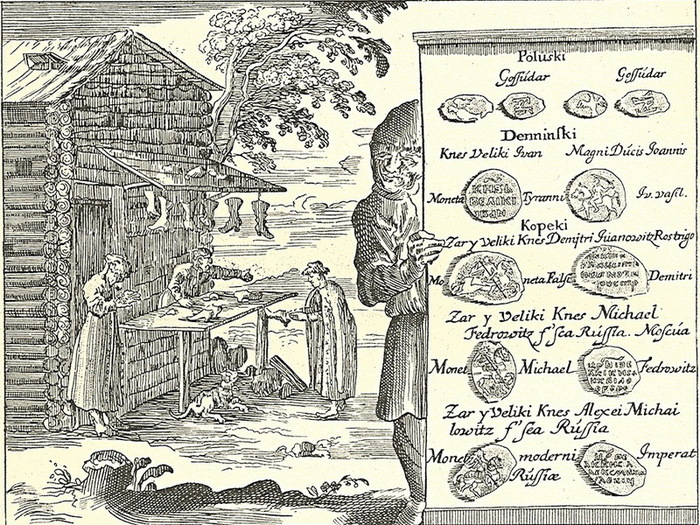 Poluski
Gossudar Gossudar
Denninski
Knes Veliki Ivan Magni Dúcis Joannis
Moneta Tyranni Iv. vasl.
Kopeki
Zar y Veliki Knes Demitri Iuanowitz Rostrigo
Mo neta Falsé Demitri
Zar y Veliki Knes Michael
Fedrowitz f'sea Rússia. Moscúa
Monet Michael Fedrowitz
Zar y Veliki Knes Alexei Michai
lowitz f'sea Rússia
Monet moderni Imperat
Rússiæ